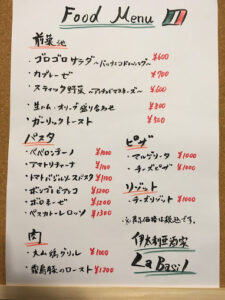 Food Menu
前菜他
・ゴロゴロサラダ ～バルサミコドレッシング～ ¥600
・カプレーゼ ¥700
・スティック野菜 ～アンチョビマヨネーズ～ ¥600
・生ハム・オリーブ盛り合わせ ¥800
・ガーリックトースト ¥500
パスタ
・ペペロンチーノ
・アマトリチャーナ
・トマトバジルソースパスタ
・ボンゴレビアンコ ¥1200
・ボロネーゼ ¥1200
・ペスカトーレロッソ ¥1300
肉
・大山鶏グリル ¥1000
・霧島豚のロースト ¥1200
ピザ
・マルゲリータ ¥1000
・チーズピザ ¥1000
リゾット
・チーズリゾット ¥1000
※表示価格は税込です。
伊太利亜酒家
La Basil